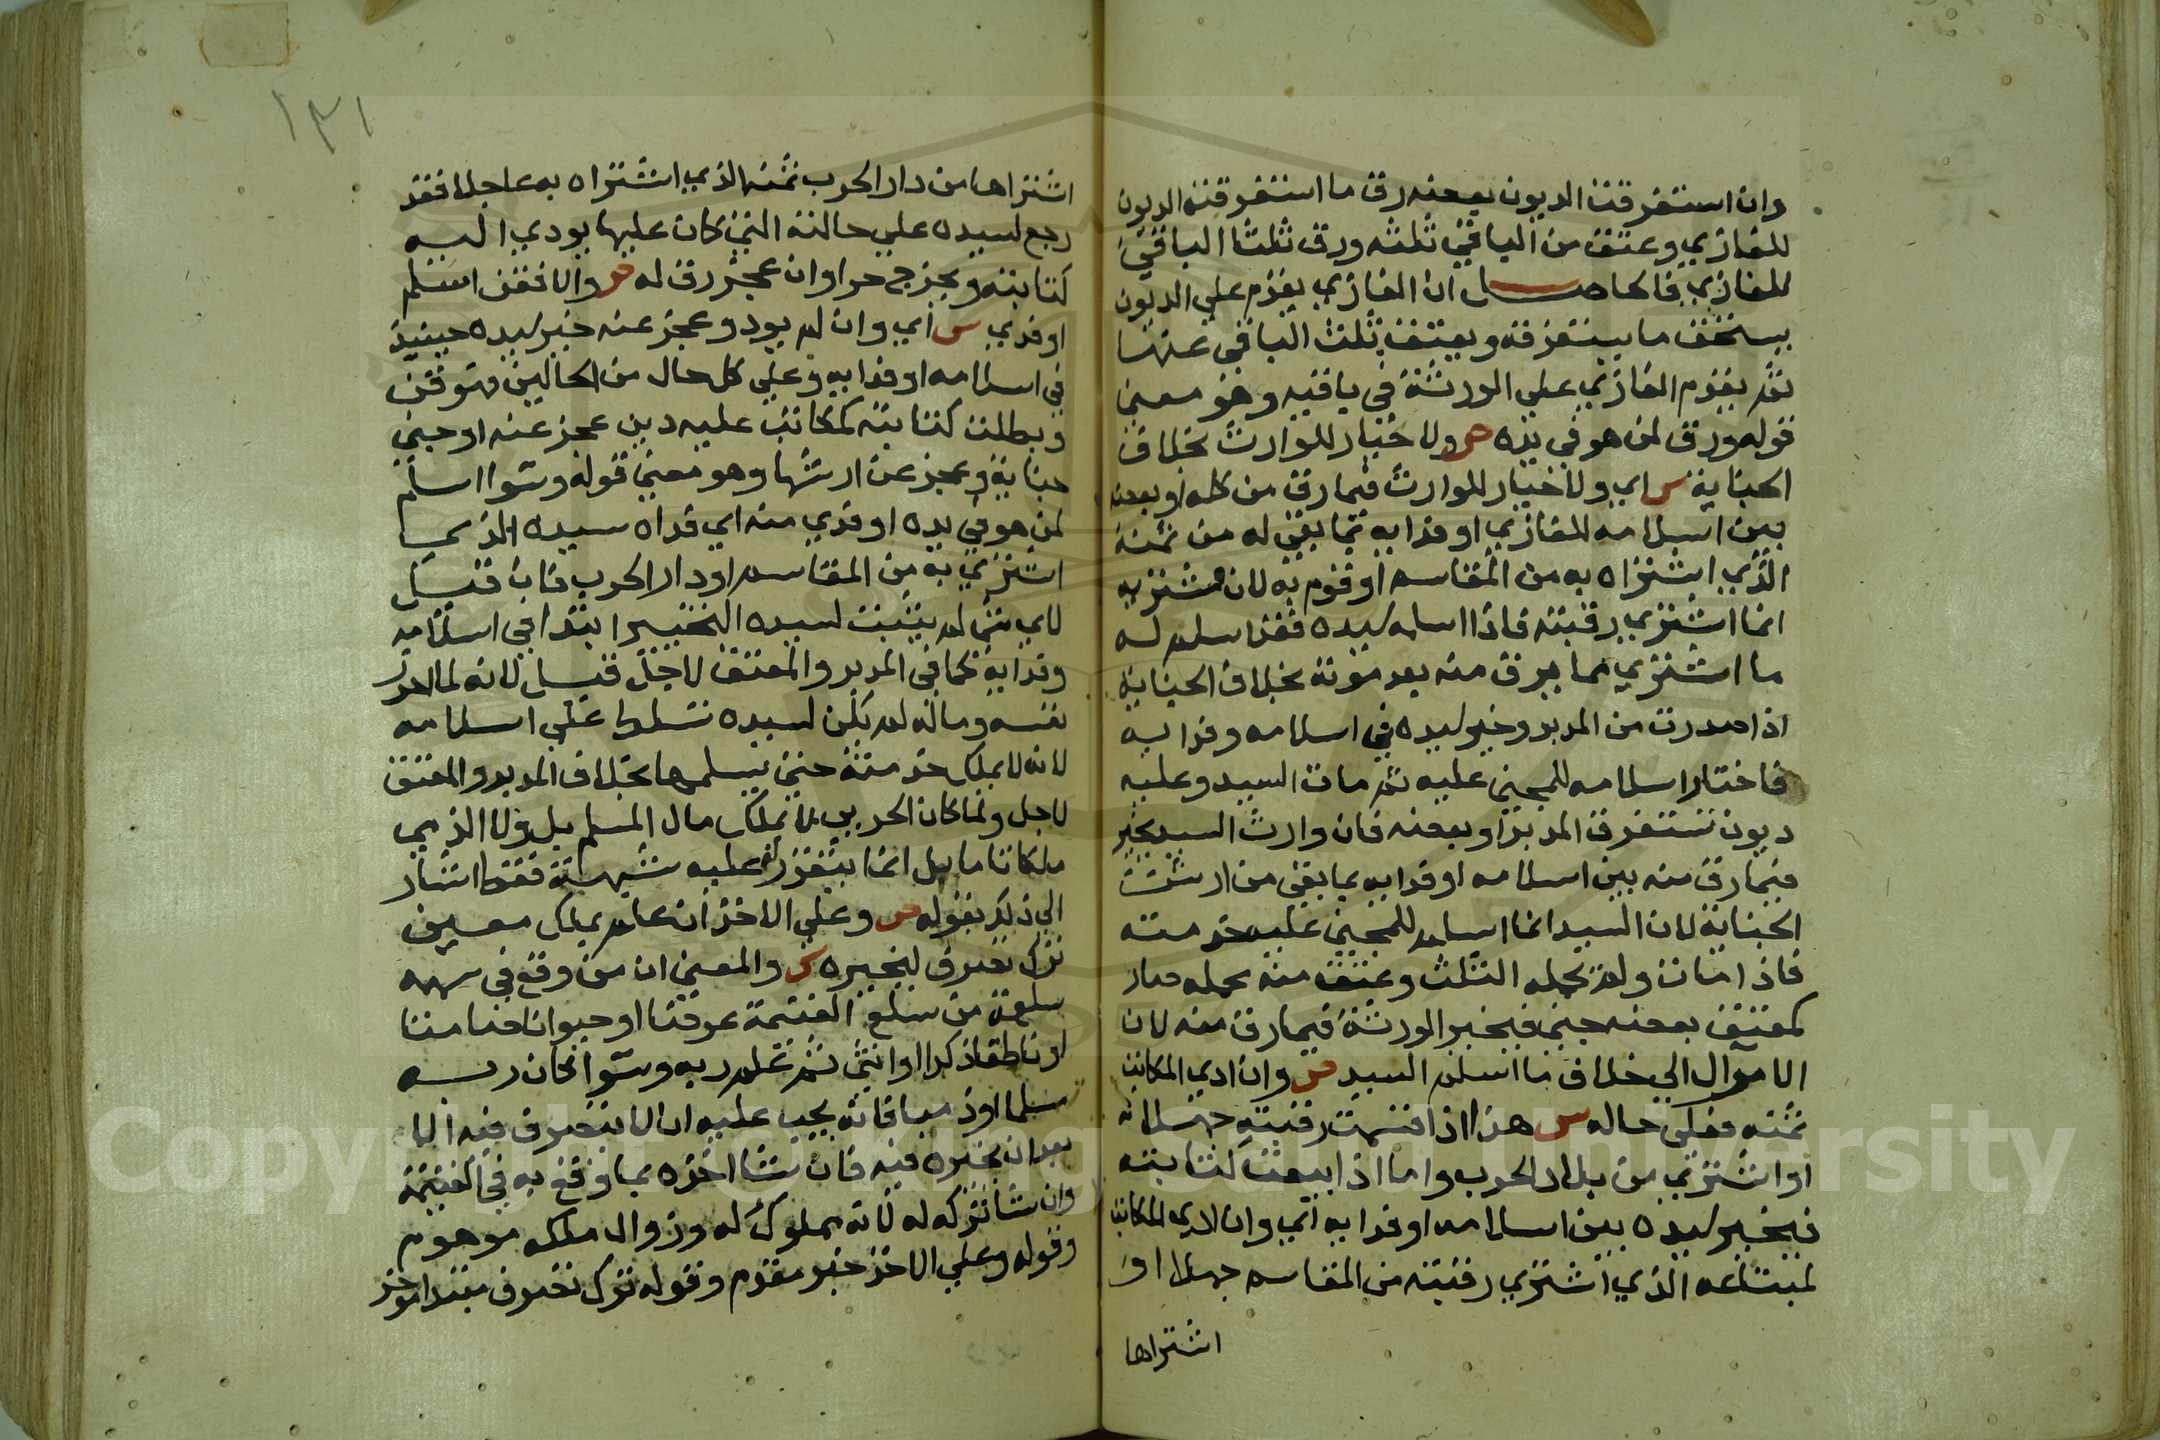 وان استغرقت الديون بعضه رق ما استغرقته الديون
للغازي وعتق من الباقي ثلثه ورق ثلثا الباقي
للغازي فالحاصل ان الغازي يقدم علي الديون
يستحق ما يستغرقه ويعتق ثلث الباقي عنها
ثم يقدم الغازي علي الورثة في باقيه وهو معني
قوله ورق لمن هو في يده ص ولا خيار للوارث بخلاف
الجناية ش اي ولا خيار للوارث فيما رق من كله او بعضه
بين اسلامه للغازي او فدايه بما بقي له من ثمنه
الذي اشتراه به من المقاسم او قوم به لان مشتريه
انما اشتري رقبته فاذا اسلمه سيده فقد اسلم له
ما اشتري مما يرق منه بعد موته بخلاف الجناية
اذا صدرت من المدبر وخير سيده في اسلامه وفدايه
فاختار اسلامه للمجني عليه ثم مات السيد وعليه
ديون تستغرق المدبر او بعضه فان وارث السيد يخير
فيما رق منه بين اسلامه او فدايه بما بقي من ارش
الجناية لان السيد انما اسلم للمجني عليه خدمته
فاذا مات ولم يحمله الثلث وعتق منه محمله صار
كمعتق بعضه جني فيخير الورثة فيما رق منه لان
الاموال الي خلاف ما اسلم السيد ص وان ادي المكاتب
ثمنه فعلي حاله ش هذا اذا قسمت رقبته جهلا به
او اشتري من بلاد الحرب واما اذا بيعت كتابته
فيخير سيده بين اسلامه او فدايه اي وان ادي المكاتب
لمبتاعه الذي اشتري رقبته من المقاسم جهلا او
اشتراها
١٣١
اشتراها من دار الحرب ثمنه الذي اشتراه به عاجلا فقد
رجع لسيده علي حالته التي كان عليها يودي اليه
كتابته ويخرج حرا وان عجز رق له ص والا فقن اسلم
او فدي ش اي وان لم يود وعجز عنه خير سيده حينيذ
في اسلامه او فدايه وعلي كل حال من الحالين فهو قن
وبطلت كتابته كمكاتب عليه دين عجز عنه او جني
جناية وعجز عن ارشها وهو معني قوله وسوا اسلم
لمن هو في يده او فدي منه اي فداه سيده الذي
اشتري به من المقاسم او دار الحرب فان قيل
لاي شي لم يثبت لسيده التخيير ابتدا في اسلامه
وفدايه كما في المدبر والمعتق لاجل قيل لانه لما احرز
نفسه وماله لم يكن لسيده تسلط علي اسلامه
لانه لا يملك خدمته حتي يسلمها بخلاف المدبر والمعتق
لاجل ولما كان الحربي لا يملك مال المسلم بل ولا الذمي
ملكا تاما بل انما يتقرر له عليه شبهته فقط اشار
الي ذلك بقوله ص وعلي الاخذ ان علم بملك معين
ترك تصرف ليخيره ش والمعني ان من وقع في سهمه
سلعة من سلع الغنيمة عرضا او حيوانا صامتا
او ناطقا ذكرا او انثي ثم علم ربه وسوا كان ربه
مسلما او ذميا فانه يجب عليه ان لا يتصرف فيه الا
بعد ان يخيره فيه فان شا اخذه بما وقع به في الغنيمة
وان شا تركه له لانه مملوك له وزوال ملكه موهوم
وقوله وعلي الاخذ خبر مقدم وقوله ترك تصرف مبتدا موخر
Copyright © King Saud University